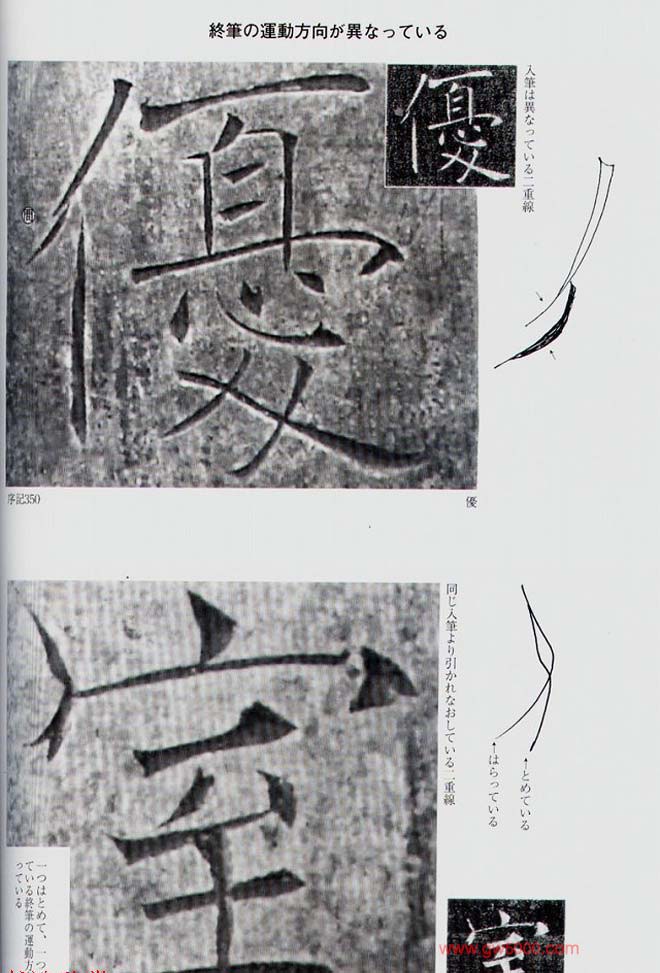 終筆の運動方向が異なっている
優
優
入筆は異なっている二重線
序記350
優
室
同じ入筆より引かれなおしている二重線
←とめている
←はらっている
一つはとめて、一つ
ている終筆の運動方
っている